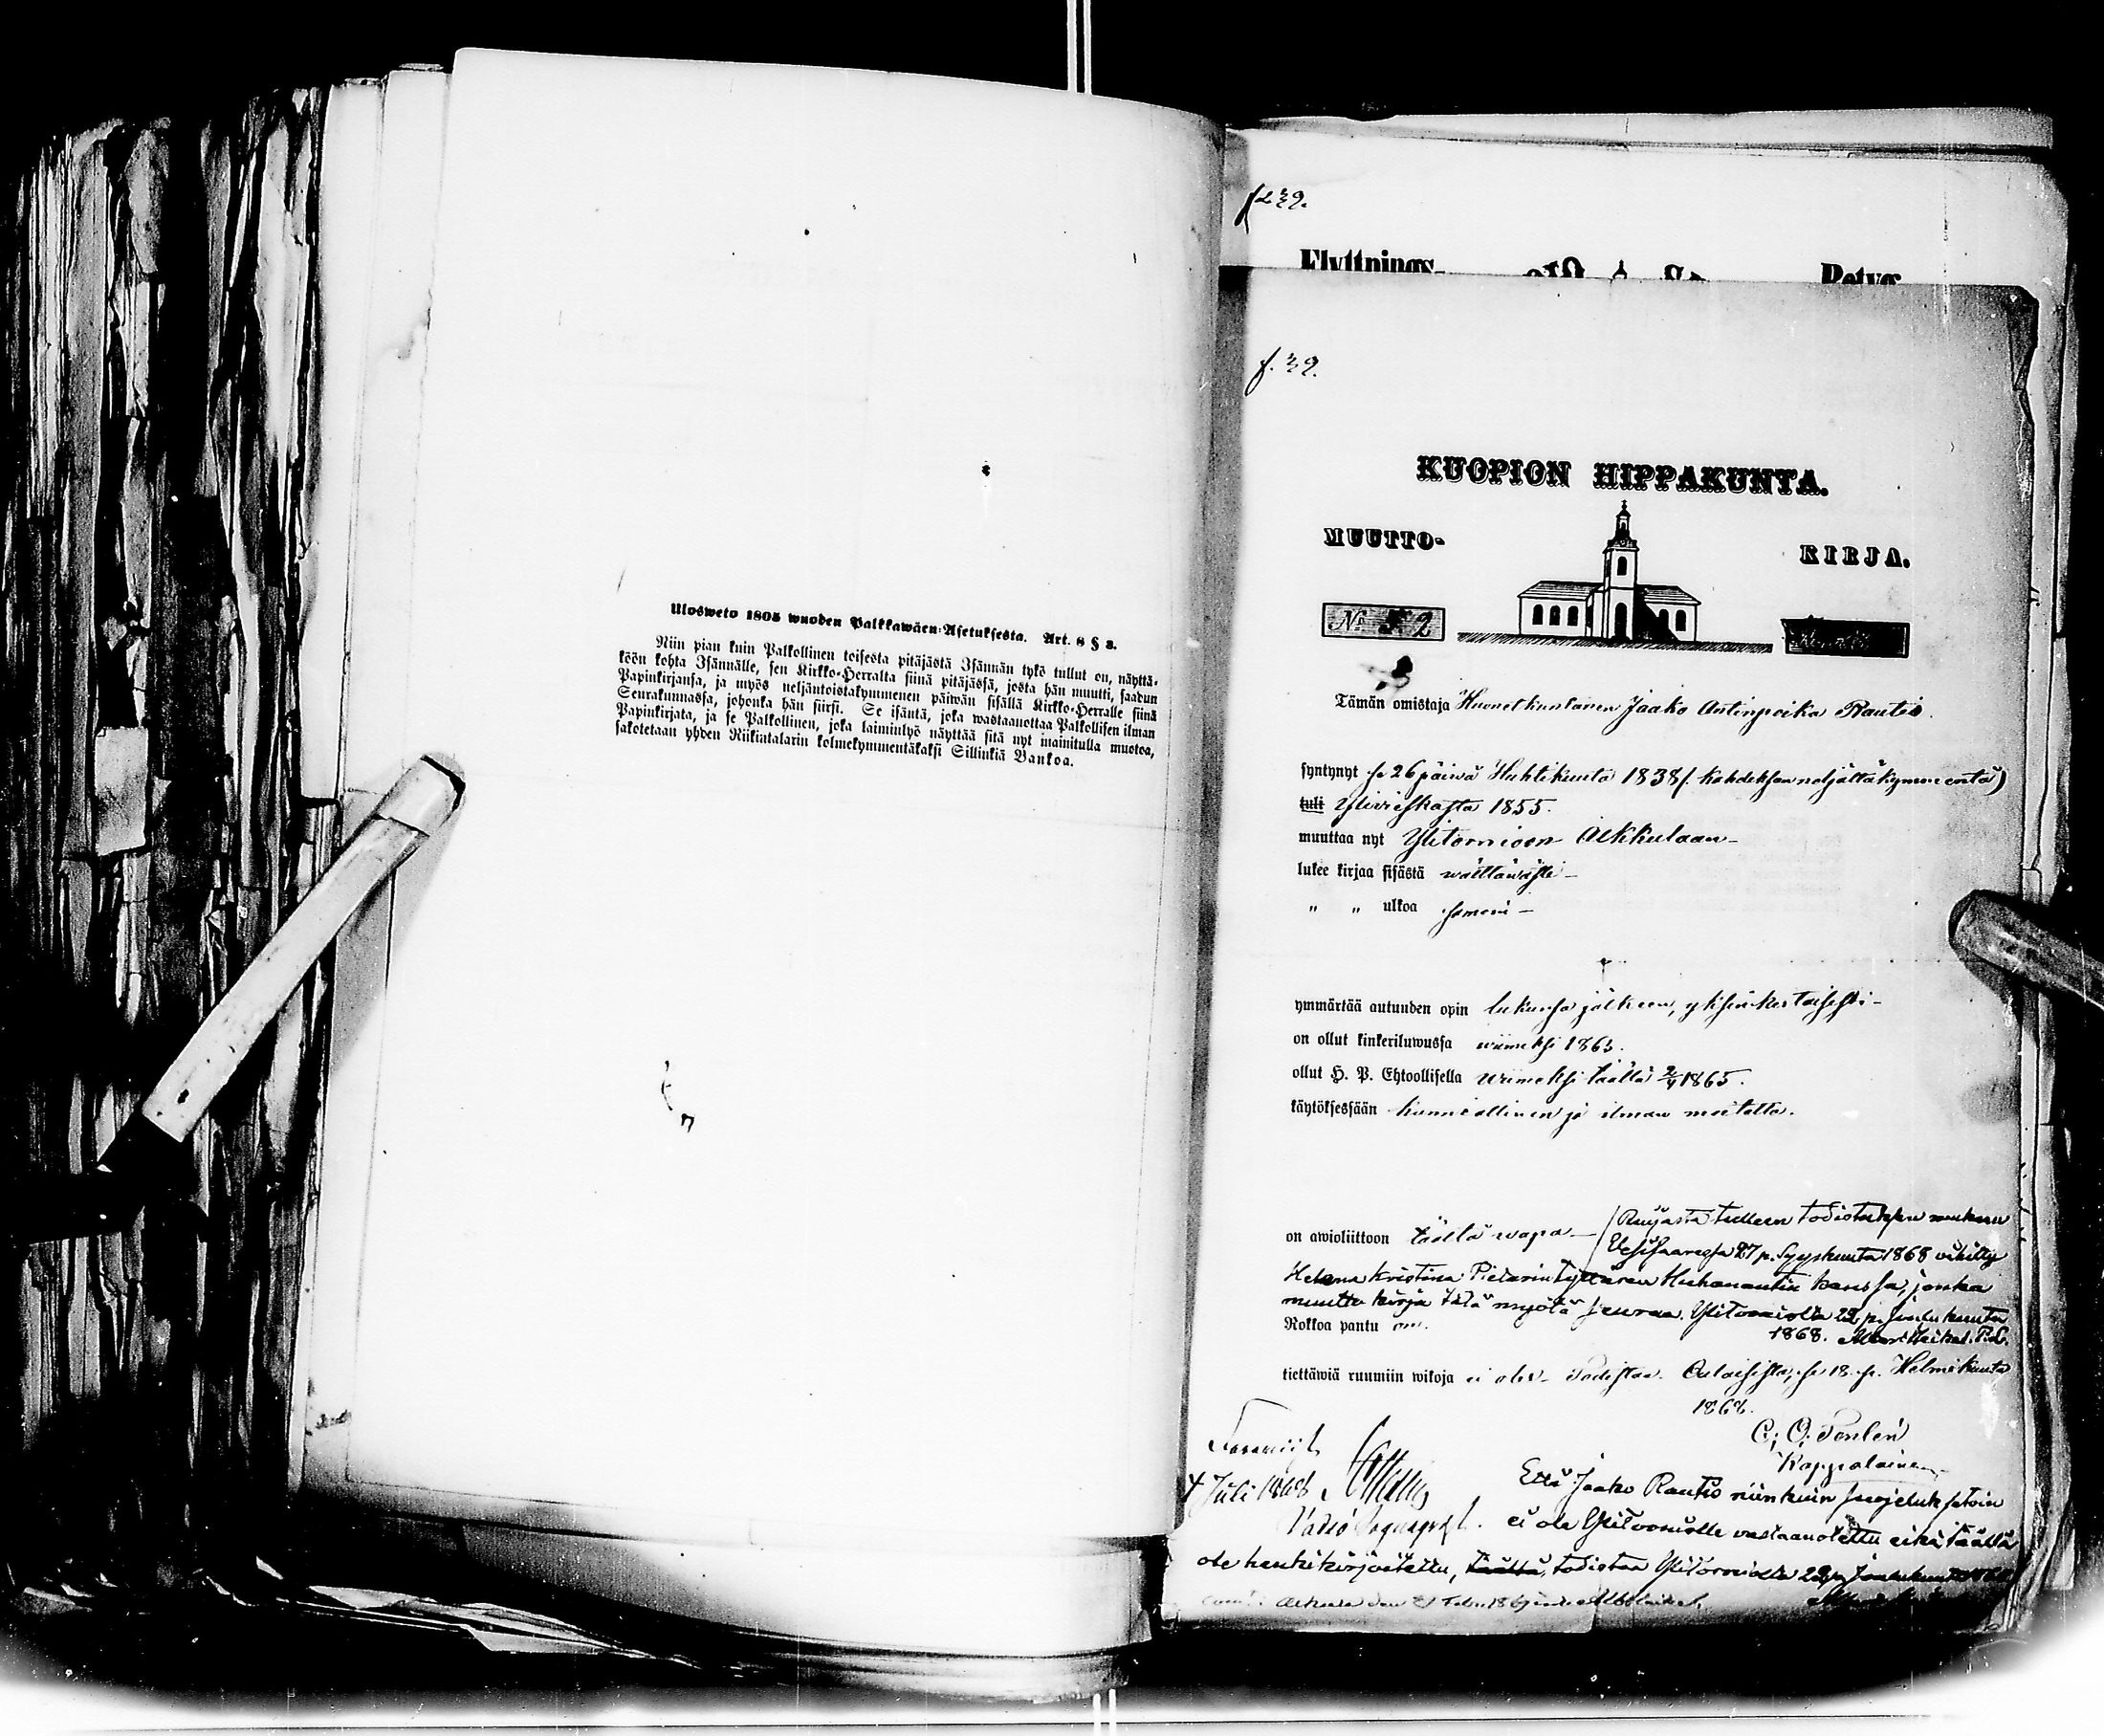 Ulosweto 1805 wuoden Palkkawäen-Asetuksesta. Art. 8 § 3.
Niin pian kuin Palkollinen toisesta pitäjästä Isännän tykö tullut on, näyttä-
köön kohta Isännälle, sen Kirkko-Herralta siinä pitäjässä, josta hän muutti, saadun
Papinkirjansa, ja myös neljäntoistakymmenen päiwän sisällä Kirkko-Herralle siinä
Seurakunnassa, johonka hän siirsi. Se isäntä, joka wastaanottaa Palkollisen ilman
Papinkirjata, ja se Palkollinen, joka laiminlyö näyttää sitä nyt mainitulla muotoa,
sakotetaan yhden Riikintalarin kolmekymmentäkaksi Sillinkiä Bankoa.
Flyttnings- Betyg
f. 39.
KUOPION HIPPAKUNTA.
MUUTTO- KIRJA.
No 52
Tämän omistaja Huonetkuntainen Jaako Antinpoika Rautio.
syntynyt se 26 päiwä Huhtikuuta 1838 (kahdeksanneljättäkymmentä)
tuli Ylivieskasta 1855.
muuttaa nyt Ylitornioon Alkkulaan –
lukee kirjaa sisästä wälttäwästi –
" " ulkoa samoin –
ymmärtää autuuden opin lukunsa jälkeen, yksinkertaisesti –
on ollut kinkeriluwussa wiimeksi 1865.
ollut H. P. Ehtoollisella wiimeksi täällä 2/4 1865.
käytöksessään kunniallinen ja ilman moitetta.
on awioliittoon täällä wapa – (Ruijasta tulleen todistuksen mukaan
Vesisaaressa 27 p. Syyskuuta 1868 vihitty
Helena Kristina Pietarintyttären Huhanantin kanssa, jonka
muutto kirja tätä myötä seuraa. Ylitorniolla 22 p. Joulukuuta
1868.
Rokkoa pantu on.
tiettäwiä ruumiin wikoja ei ole – Todistaa. Oulaisista, se 18 p. Helmikuuta
1868.
C. O. Ponlén
Kappalainen
4 Juli 1868
Vadsö
Että Jaako Rautio niinkuin suojeluksetoin
ei ole Ylitorniolle vastaanotettu eikä täällä
ole henkikirjoitettu, täällä, todistaa Ylitorniolla 22 p. Joulukuuta 1868